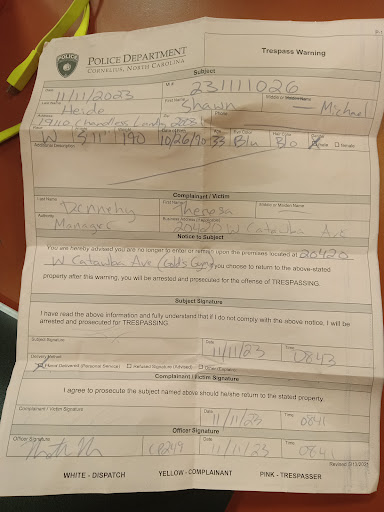 POLICE DEPARTMENT
CORNELIUS, NORTH CAROLINA
Trespass Warning
Subject
Date
11/11/2023
231111026
Last Name
Heide
First Name
Shawn
Middle or Maiden Name
Michael
19110 Chandlers Landing 28031
Phone
W 5'11" 190 10/26/90 33 Blu Blo
Eye Color
Hair Color
Female
Complainant / Victim
Last Name
First Name
Theresa
Middle or Maiden Name
Authority
Manager
Business Address (if applicable)
20420 W Catawba Ave
Notice to Subject
You are hereby advised you are no longer to enter or remain upon the premises located at 20420
W Catawba Ave (Gold's Gym) you choose to return to the above-stated
property after this warning, you will be arrested and prosecuted for the offense of TRESPASSING.
Subject Signature
I have read the above information and fully understand that if I do not comply with the above notice, I will be
arrested and prosecuted for TRESPASSING.
Subject Signature
Date
11/11/23
Time
0843
Delivery Method
Hand Delivered (Personal Service)
Refused Signature (Advised)
Other (Explain)
Complainant / Victim Signature
I agree to prosecute the subject named above should he/she return to the stated property.
Complainant / Victim Signature
Date
11/11/23
Time
0841
Officer Signature
Officer Signature
CP249
Date
11/11/23
Time
0841
WHITE - DISPATCH
YELLOW - COMPLAINANT
PINK - TRESPASSER